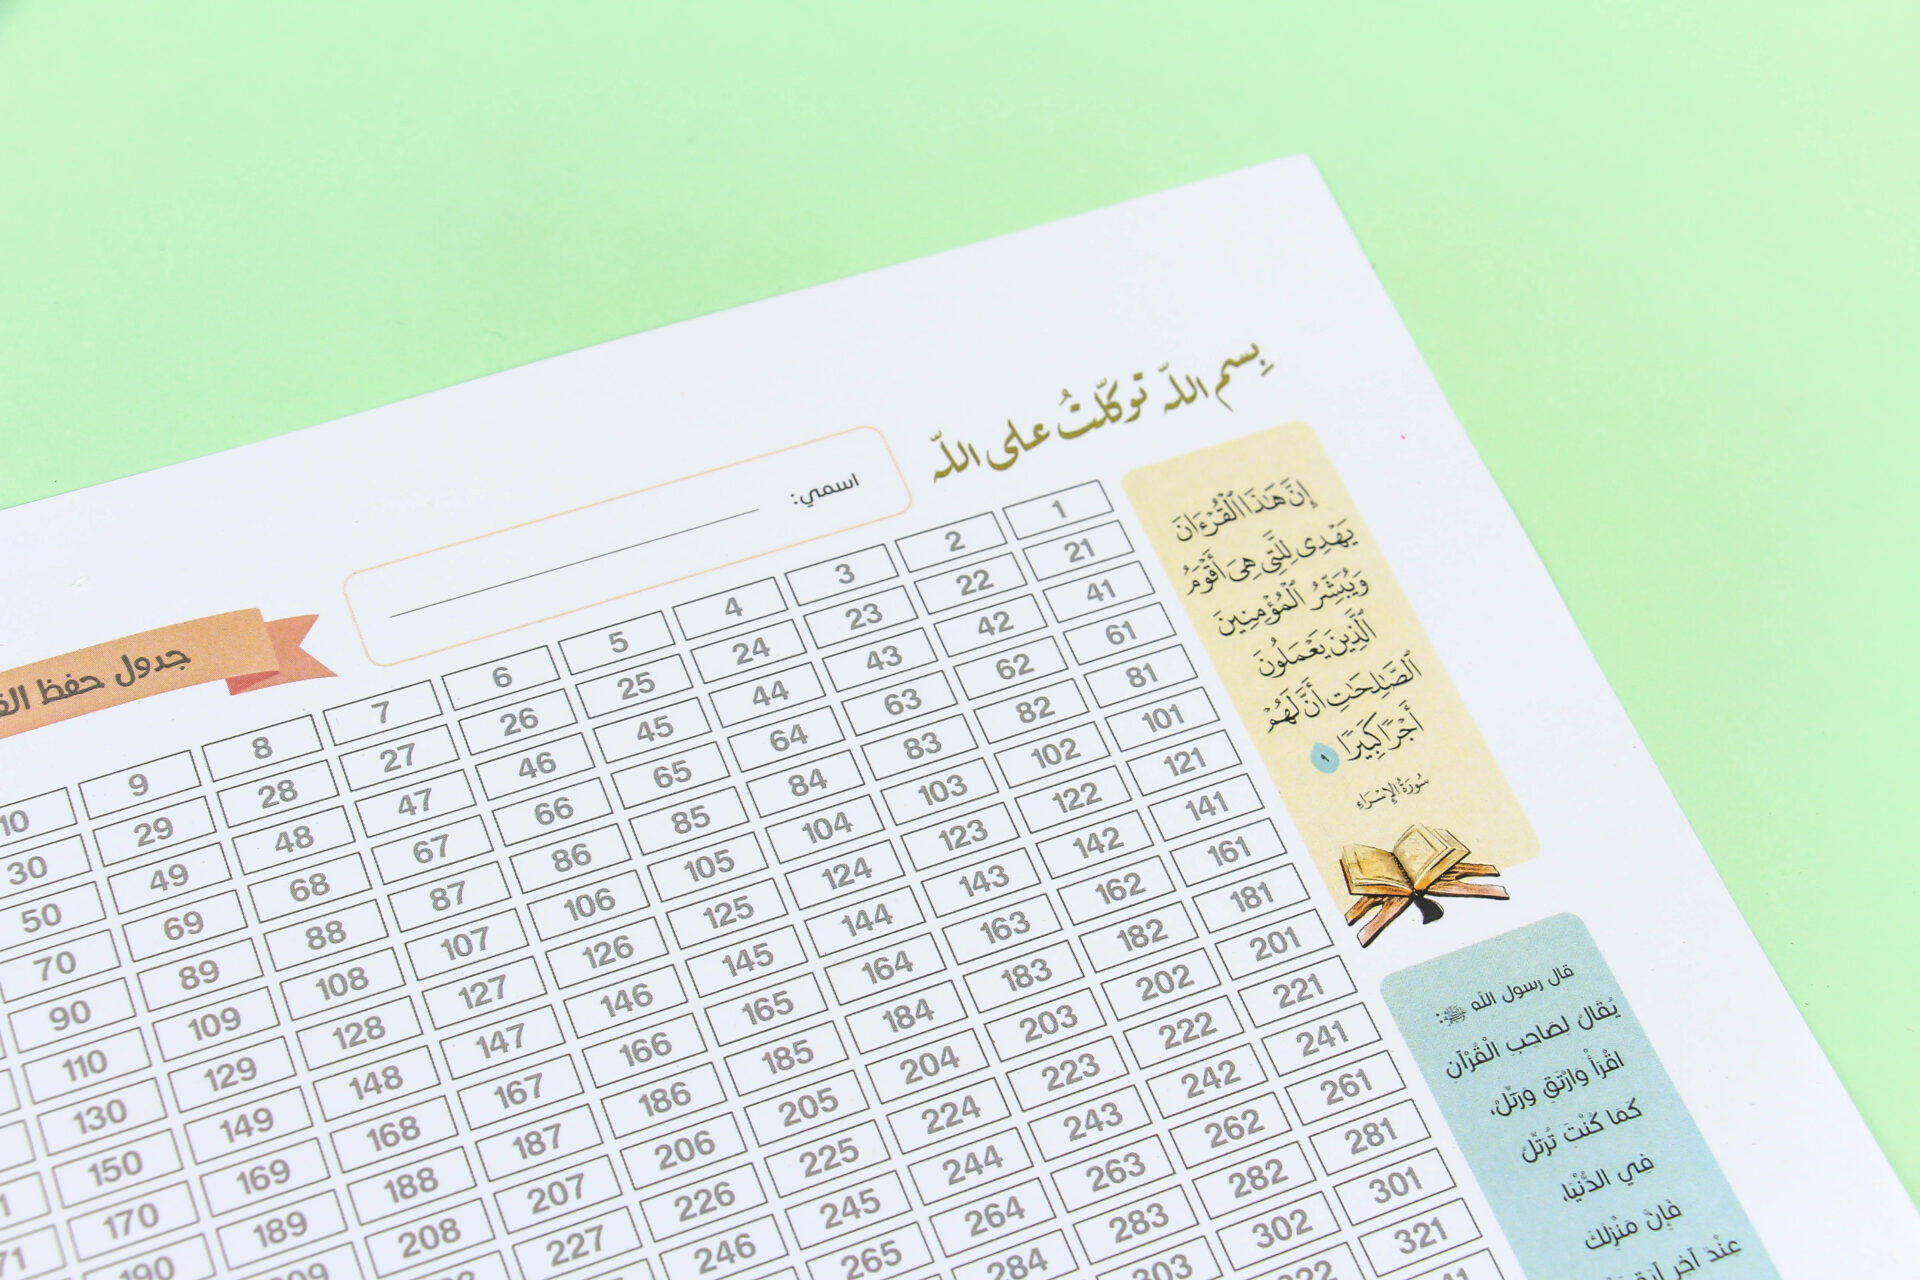 بِسم اللّه توكّلتُ على اللّه
اسمي:
جدول حفظ
1 2 3 4 5 6 7 8 9 10
21 22 23 24 25 26 27 28 29 30
41 42 43 44 45 46 47 48 49 50
61 62 63 64 65 66 67 68 69 70
81 82 83 84 85 86 87 88 89 90
101 102 103 104 105 106 107 108 109 110
121 122 123 124 125 126 127 128 129 130
141 142 143 144 145 146 147 148 149 150
161 162 163 164 165 166 167 168 169 170
181 182 183 184 185 186 187 188 189 190
201 202 203 204 205 206 207 208
221 222 223 224 225 226 227
241 242 243 244 245 246
261 262 263 264 265
281 282 283 284
301 302 303
321
إِنَّ هَٰذَا ٱلْقُرْءَانَ
يَهْدِى لِلَّتِى هِىَ أَقْوَمُ
وَيُبَشِّرُ ٱلْمُؤْمِنِينَ
ٱلَّذِينَ يَعْمَلُونَ
ٱلصَّٰلِحَٰتِ أَنَّ لَهُمْ
أَجْرًا كَبِيرًا ٩
سُورَةُ الإِسْرَاء
قال رسول الله ﷺ:
يُقَالُ لِصَاحِبِ الْقُرْآنِ
اقْرَأْ وارْتَقِ وَرَتِّلْ،
كَما كُنْتَ تُرَتِّلُ
في الدُّنْيَا،
فَإِنَّ مَنْزِلَكَ
عِنْدَ آخِرِ